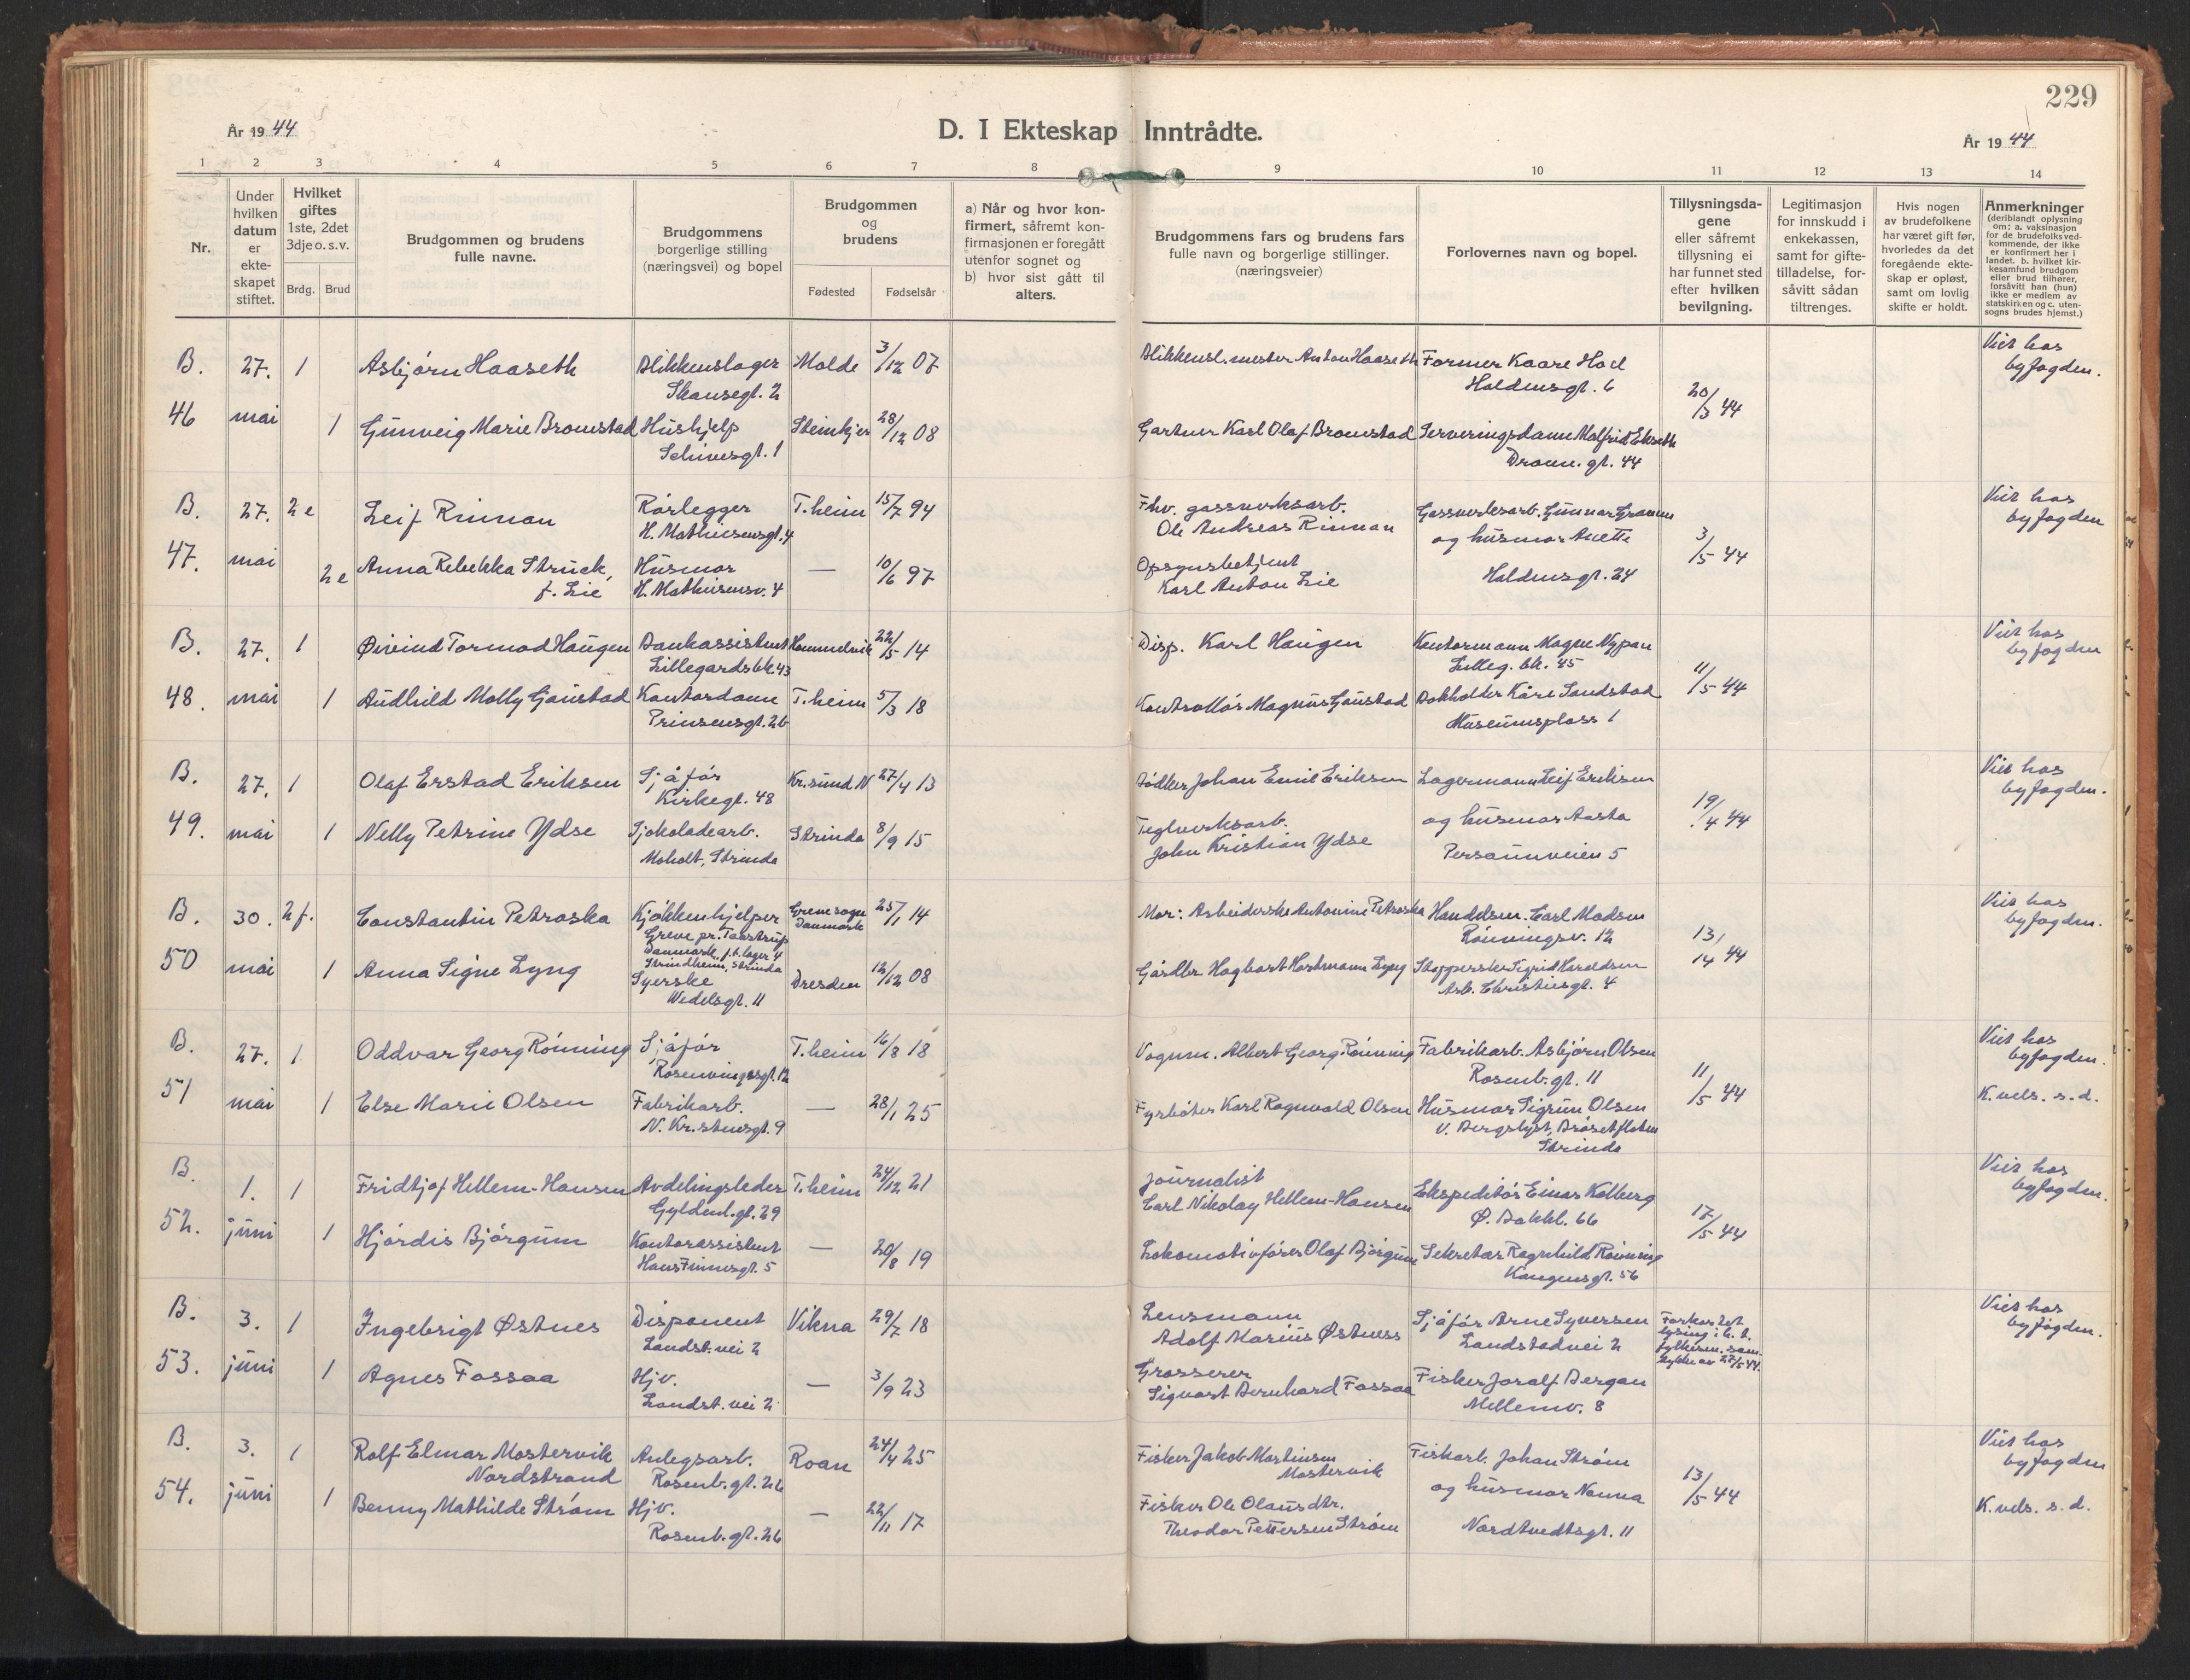 229
År 1944
D. I Ekteskap Inntrådte.
År 1944
1 2 3 4 5 6 7 8 9 10 11 12 13 14
Nr.
Under hvilken datum er ekteskapet stiftet.
Hvilket giftes 1ste, 2det 3dje o. s. v.
Brdg. Brud
Brudgommen og brudens fulle navne.
Brudgommens borgerlige stilling (næringsvei) og bopel
Brudgommen og brudens
Fødested Fødselsår
a) Når og hvor konfirmert, såfremt konfirmasjonen er foregått utenfor sognet og
b) hvor sist gått til alters.
Brudgommens fars og brudens fars fulle navn og borgerlige stillinger. (næringsveier)
Forlovernes navn og bopel.
Tillysningsdagene eller såfremt tillysning ei har funnet sted efter hvilken bevilgning.
Legitimasjon for innskudd i enkekassen, samt for giftetilladelse, forsåvitt sådan tiltrenges.
Hvis nogen av brudefolkene har været gift før, hvorledes da det foregående ekteskap er opløst, samt om lovlig skifte er holdt.
Anmerkninger (deriblandt oplysning om: a. vaksinasjon for de brudefolks vedkommende, der ikke er konfirmert her i landet. b. hvilket kirkesamfund brudgom eller brud tilhører, forsåvitt han (hun) ikke er medlem av statskirken og c. utensogns brudes hjemst.)
B. 27. 1 Asbjörn Haaseth Blikkenslager Molde 3/12 07 Blikkensl.mester Anton Haaseth Former Kaare Hoel Viet hos
Skansegt. 2 Holdensgt. 6 byfogden.
46 mai 1 Gunveig Marie Bromstad Hushjelp Steinkjer 28/12 08 Gartner Karl Olaf Bromstad Serveringsdame Malfrid Ekseth 20/3 44
Schivesgt. 1 Dronn. gt. 44
B. 27. 2 e Leif Rinnan Rörlegger T.heim 15/7 94 Fhv. gassverksarb. Gassverksarb. Gunnar Gramm Viet hos
H. Mathiesensgt. 4 Ole Andreas Rinnan og husmor Anette byfogden
47. mai 2 e Anna Rebekka Struck, Husmor — 10/6 97 Opsynsbetjent 3/5 44
f. Lie H. Mathiesensv. 4 Karl Anton Lie Holdensgt. 24
B. 27. 1 Øivind Tormod Haugen Bankassistent Hommelvik 22/5 14 Disp. Karl Haugen Kontormann Magne Nypan Viet hos
Lillegårdsbk. 43 Lilleg. bk. 45 byfogden
48. mai 1 Audhild Molly Gaustad Kontordame T.heim 5/3 18 Kontrollör Magnus Gaustad Bokholder Kåre Sandstad 11/5 44
Prinsensgt. 2b Museumsplass 1
B. 27. 1 Olaf Erstad Eriksen Sjåför Kr.sund N 27/4 13 Bödker Johan Emil Eriksen Lagermann Leif Eriksen Viet hos
Kirkegt. 48 og husmor Aasta byfogden.
49. mai 1 Nelly Petrine Ydse Sjokoladearb. Strinda 8/9 15 Teglverksarb. 19/4 44
Moholt, Strinda John Kristian Ydse Persaunveien 5
B. 30. 2 f. Constantin Petroska Kjökkenhjelper Greve sogn Danmark 25/1 14 Mor: Arbeiderske Antonine Petroska Handelsm. Carl Madsen Viet hos
Greve pr. Taastrup Rönningsv. 12 byfogden.
Danmark, f.t. lager 4
Strindheim, Strinda
50 mai 1 Anna Signe Lyng Syerske Dresden 12/12 08 Gårdbr. Hagbart Hartmann Lyng Stopperske Sigrid Haroldsen 13/14 44
Wedelsgt. 11 Arb. Christiesgt. 4
B. 27. 1 Oddvar Georg Rönning Sjåför T.heim 16/8 18 Vognm. Albert Georg Rönning Fabrikarb. Asbjörn Olsen Viet hos
Rosenvingesgt. 12 Rosenb. gt. 11 byfogden.
51 mai 1 Else Marie Olsen Fabrikarb. — 28/1 25 Fyrböter Karl Ragnvald Olsen Husmor Sigrun Olsen 11/5 44 K. vels. s. d.
N. Kr.stensgt. 9 v. Bergslyst, Bröset floten
Strinda
B. 1. 1 Fridtjof Hellem-Hansen Avdelingsleder T.heim 24/12 21 journalist Ekspeditör Einar Kolberg Viet hos
Gyldenl. gt. 29 Carl Nikolay Hellem-Hansen Ø. Bakkl. 66 byfogden.
52. juni 1 Hjördis Björgum Kontorassistent — 20/8 19 Lokomotivförer Olaf Björgum Sekretær Ragnhild Rönning 17/5 44
Hans Finnesgt. 5 Kongensgt. 56
B. 3. 1 Ingebrigt Østnes Disponent Vikna 29/7 18 Lensmann Sjåför Arne Syversen Forkortet Viet hos
Landst. vei 2 Adolf Marius Østness Landstadvei 2 lysing i h. t. byfogden.
53. juni 1 Agnes Fossaa Hjv. — 3/9 23 Grosserer Fisker Joralf Bergan fylkesm. samtykke av 27/5 44.
Landst. vei 2 Sigvart Bernhard Fossaa Mellemv. 8
B. 3. 1 Rolf Elmar Mostervik Anlegsarb. Roan 24/4 25 Fisker Jakob Martinsen Fiskarb. Johan Ström Viet hos
Nordstrand Rosenb. gt. 26 Mostervik og husmor Nanna byfogden
54. juni 1 Benny Mathilde Ström Hjv. — 22/11 17 Fisker Ole Olaus dtr. 13/5 44 K. vels. s. d.
Rosenb. gt. 26 Theodor Pettersen Ström Nordtvedtsgt. 11